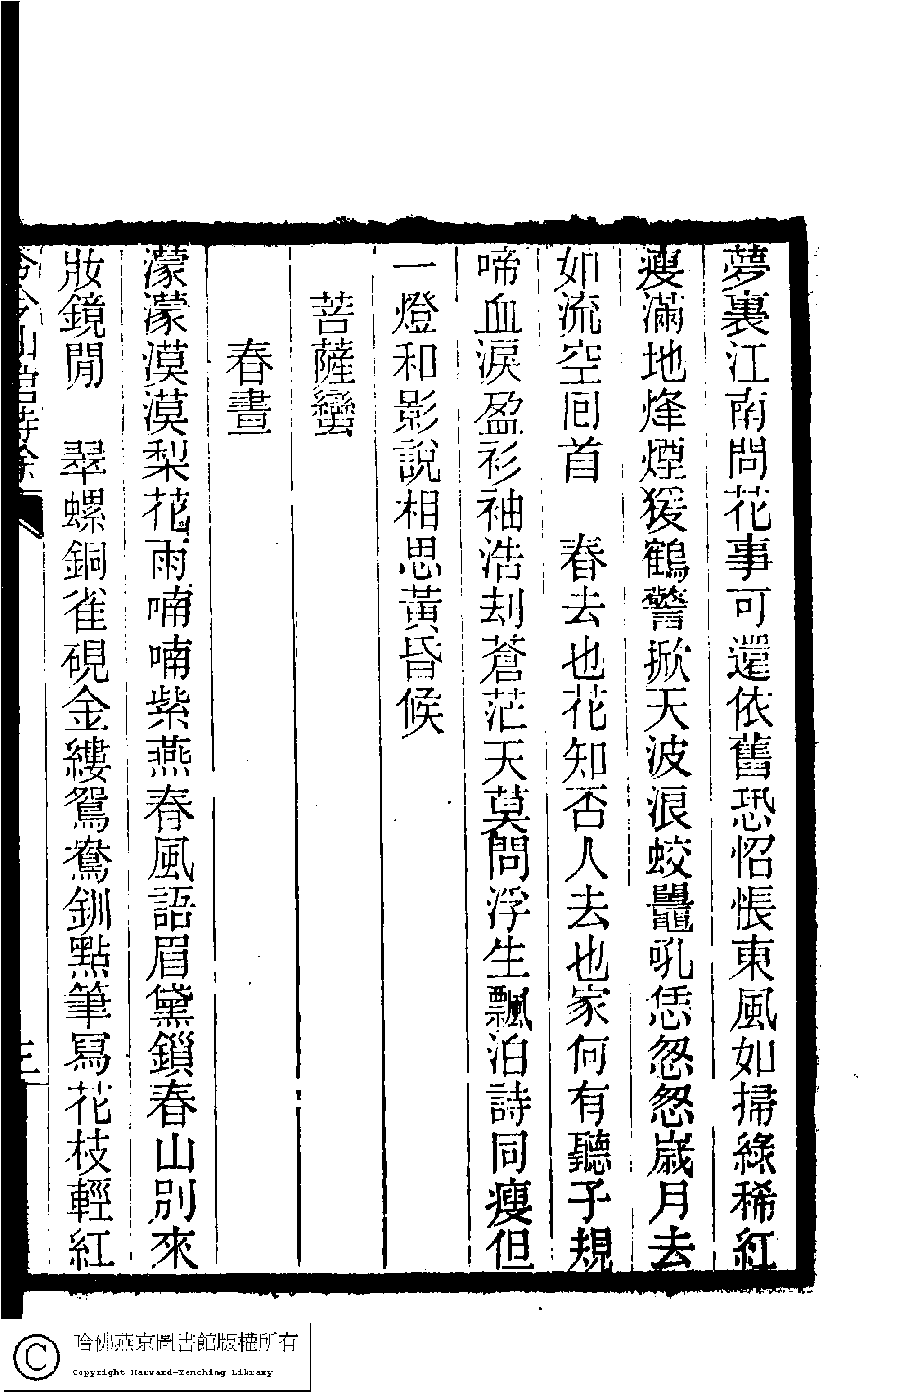 夢裏江南問花事可還依舊恐怊悵東風如掃綠稀紅
瘦滿地烽煙猨鶴警掀天波浪蛟鼉吼恁怱怱歲月去
如流空囘首　春去也花知否人去也家何有聽子規
啼血淚盈衫袖浩刦蒼茫天莫問浮生飄泊詩同瘦但
一燈和影說相思黃昏候
菩薩蠻
春晝
濛濛漠漠梨花雨喃喃紫燕春風語眉黛鎖春山別來
妝鏡閒　翠螺銅雀硯金縷鴛鴦釧點筆寫花枝輕紅
三
哈佛燕京圖書館版權所有
Copyright Harvard-Yenching Library